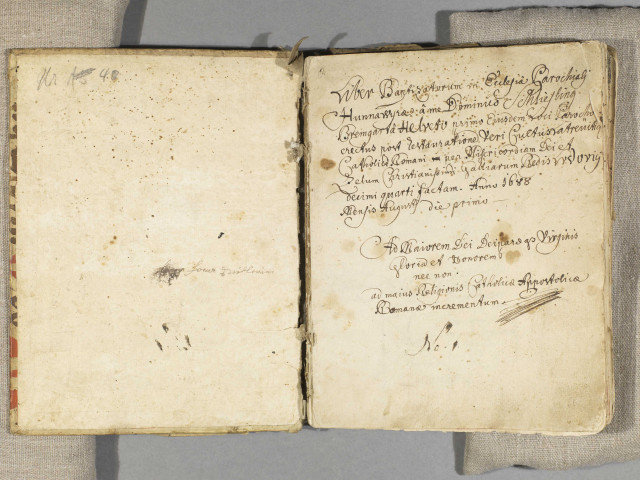 Liber Baptizatorum in Ecclesia Parochiali
Hunnawyræ: a me Dominico Schlüsling
Bremgarta Helveto primo Eiusdem loci Parocho
erectus post restaurationem Veri Cultus
Catholico Romani per Misericordiam Dei et
Zelum Christianissimi Galliarum Regis
decimi quarti factam. Anno 1688
Mensis Augusti die primo
Ad Maiorem Dei Deiparæqs Virginis
gloriā et honorem
nec non
ad maius Religionis Catholicæ Appostolicæ
Romanæ incrementum
No. 1